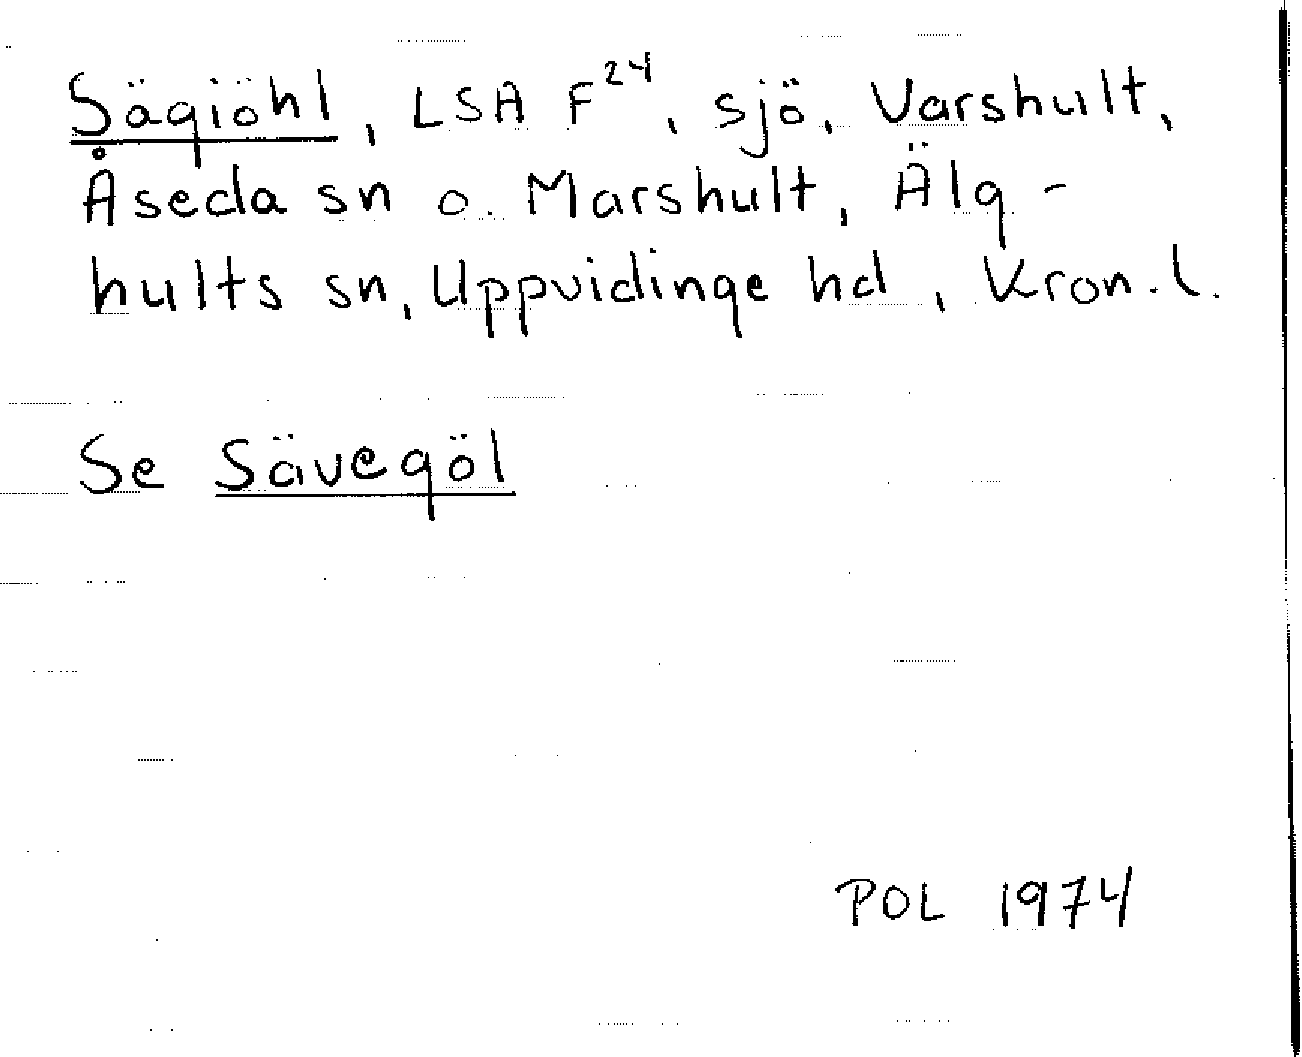 Sägiöhl, LSA F24, sjö, Varshult,
Åseda sn o. Marshult, Älg-
hults sn, Uppvidinge hd, Kron. l.
Se Sävegöl
POL 1974